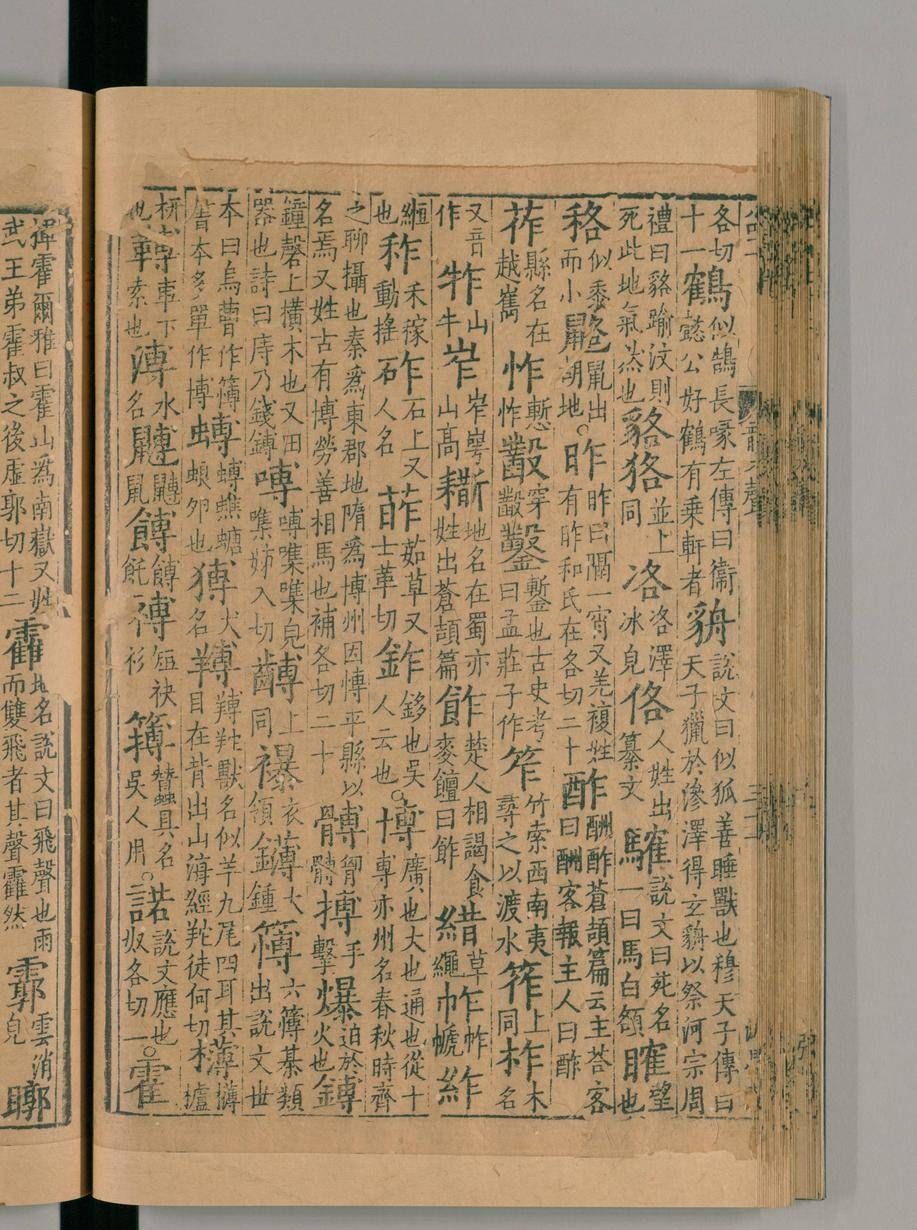 各切十一鶴似鵠長喙左傳曰衞懿公好鶴有乗軒者貈說文曰似狐善睡獸也穆天子傳曰天子獵於滲澤得玄貈以祭河宗周
禮曰貉踰汶則死此地氣然也貉狢並上同洛洛澤冰皃佫人姓出纂文䮤說文曰苑名一曰馬白頟矐望也
䅂似黍而小䶅鼠出胡地。昨昨日隔一宵又羌複姓有昨和氏在各切二十酢酬酢蒼頡篇云主荅客曰酬客報主人曰酢
莋縣名在越嶲怍慙怍穿鑿鏨也古史考曰孟莊子作笮竹索西南夷尋之以渡水筰上同柞木名
又音作㸲山牛岝岝崿山高地名在蜀亦姓出蒼頡篇飵楚人相謁食麥饘曰飵草繩
絙也秨禾稼動搖砟石上又人名葄茹草又士革切鈼鉹也吳人云也。博廣也大也通也從十尃亦州名春秋時齊
之聊攝也秦爲東郡地隋爲博州因博平縣以名焉又姓古有博勞善相馬也補各切二十髆胷髆搏手擊爆迫於火也鎛
鐘磬上橫木也又田器也詩曰庤乃錢鎛嚩嚩㗱噍皃㗱姊入切上同襮衣領鑮大鍾簙六簙棊類出說文世
本曰烏曹作簙本多單作博䗚䗚蟭蟭螗蜋卵也猼犬名䍸䍸獸名似羊九尾四耳其目在背出山海經徒何切欂欂櫨
枅也車下索也溥水名鼠餺餺飥䙏短袂衫簿蠶具名吳人用。諾說文應也奴各切一。霍
霍爾雅曰霍山爲南嶽又姓武王弟霍叔之後虛郭切十二靃地名說文曰飛聲也雨而雙飛者其聲靃然霩雲消皃